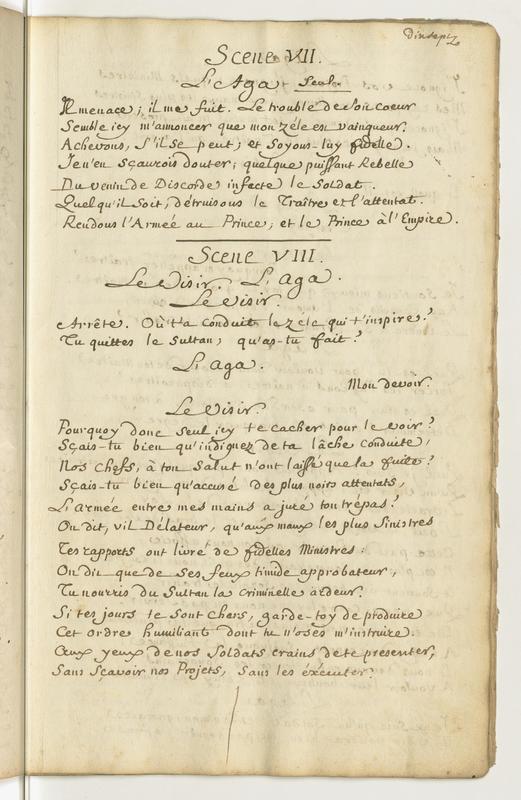 dixsept
Scene VII.
L'Aga. Seul.
Il menace; il me fuit. Le trouble de Son coeur
Semble icy m'annoncer que mon zéle est vainqueur.
Achevons, S'il Se peut; et Soyons-luy fidelle.
Je n'en Sçaurois douter; quelque puissant Rebelle
Du venin de Discorde infecte le Soldat.
Quel qu'il Soit, détruisons le Traître et l'attentat.
Rendons l'Armée au Prince, et le Prince à l'Empire.
Scene VIII.
Le Visir. L'Aga.
Le Visir.
Arrête. Où t'a conduit le zéle qui t'inspire?
Tu quittes le Sultan; qu'as-tu fait?
L'Aga.
Mon devoir.
Le Visir.
Pourquoy donc Seul icy te cacher pour le voir?
Sçais-tu bien qu'indignez de ta lâche conduite,
Nos Chefs, à ton Salut n'ont laissé que la fuite?
Sçais-tu bien qu'accusé des plus noirs attentats,
L'Armée entre mes mains a juré ton trépas?
On dit, vil Délateur, qu'aux maux les plus Sinistres
Tes rapports ont livré de fidelles Ministres:
On dit que de Ses feux timide approbateur,
Tu nourris du Sultan la Criminelle ardeur.
Si tes jours te Sont chers, garde-toy de produire
Cet ordre humiliant dont tu n'oses m'instruire.
Aux yeux de nos Soldats crains de te presenter,
Sans Sçavoir nos Projets, Sans les éxécuter.